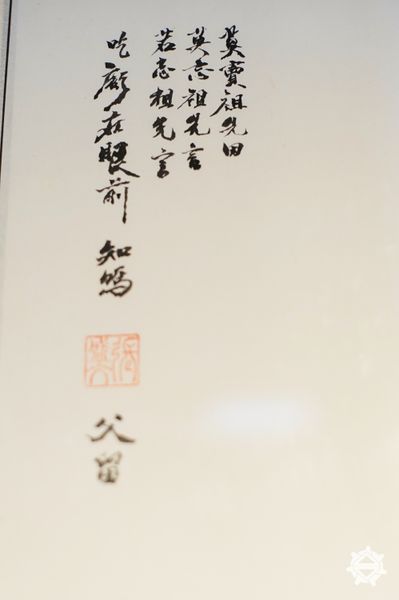 莫賣祖先田
莫忘祖先言
若忘祖先言
吃虧在眼前 知嗎
父留